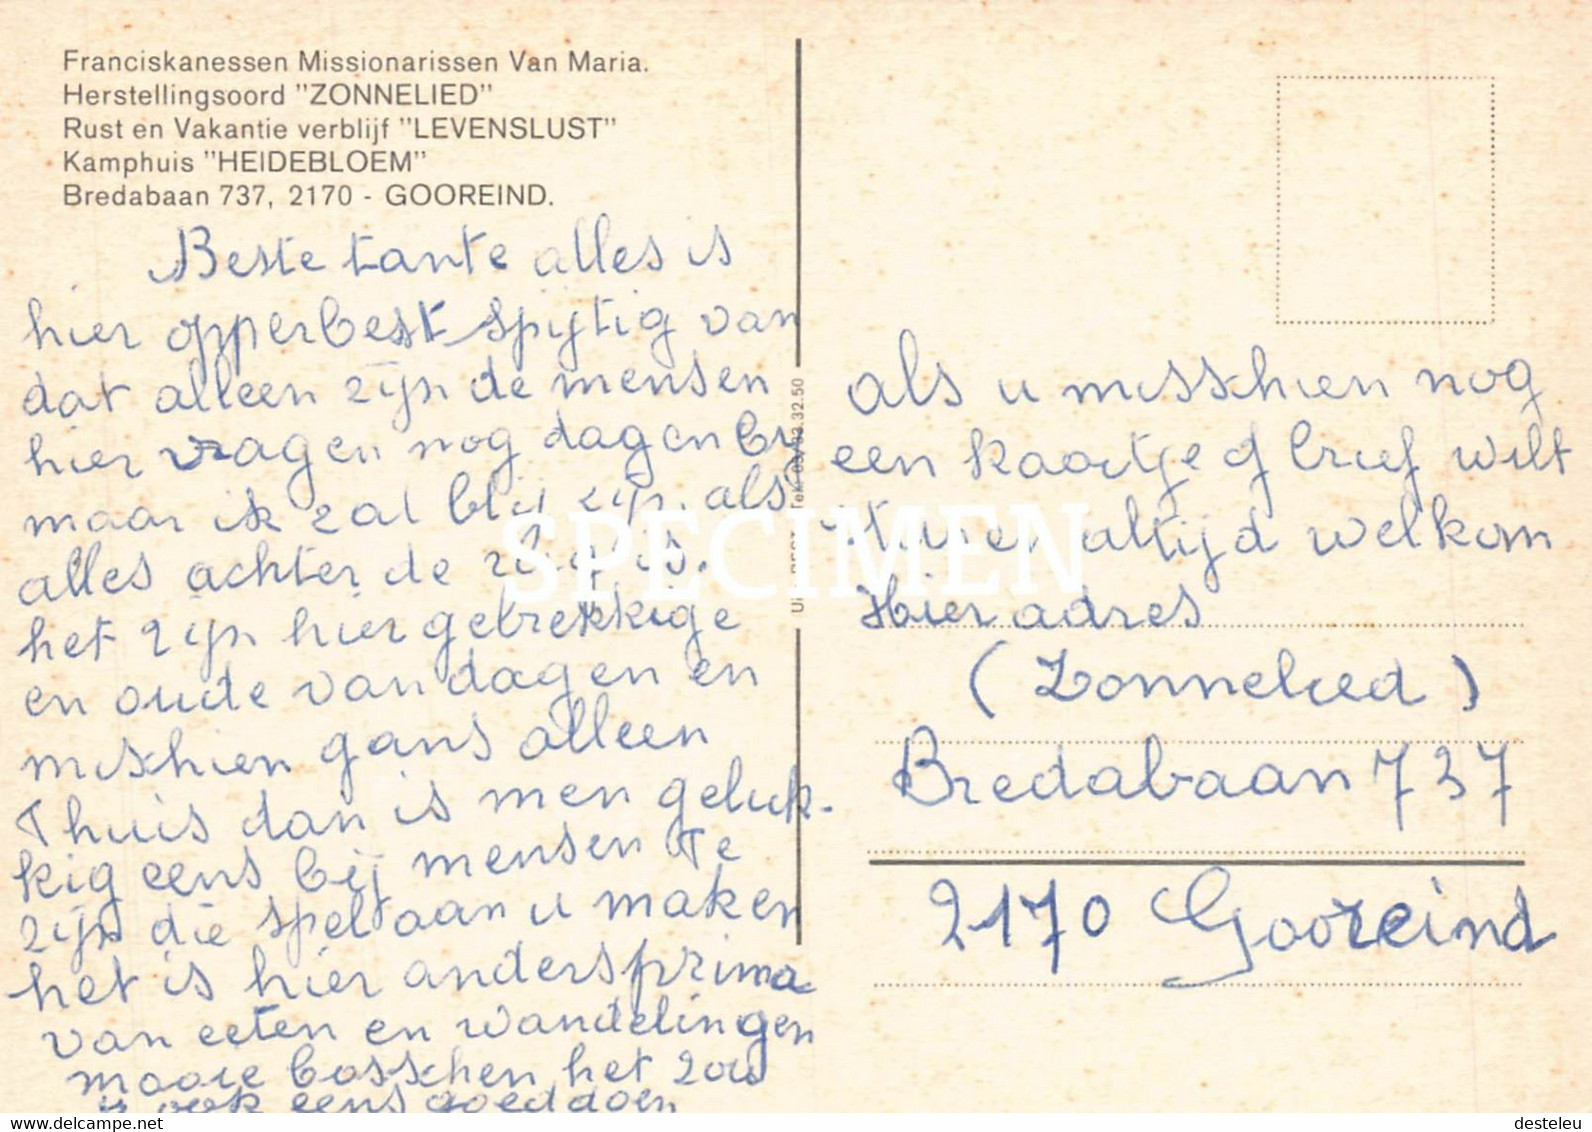 Franciskanessen Missionarissen Van Maria.
Herstellingsoord "ZONNELIED"
Rust en Vakantie verblijf "LEVENSLUST"
Kamphuis "HEIDEBLOEM"
Bredabaan 737, 2170 - GOOREIND.
Beste tante alles is
hier opperbest spijtig van
dat alleen zijn de mensen
hier vragen nog dagen by
maar ik zal blij zijn als
alles achter de rug is.
het zijn hier gebrekkige
en oude van dagen en
misschien gans alleen
Thuis dan is men geluk-
kig eens bij mensen te
zijn die spel aan u maken
het is hier anders prima
van eeten en wandelingen
mooie bosschen het zou
u ook eens goed doen
als u misschien nog
een kaartje of brief wilt
sturen altijd welkom
Hier adres
(Zonnelied)
Bredabaan 737
2170 Gooreind
32.50
SPECIMEN
www.delcampe.net
desteleu